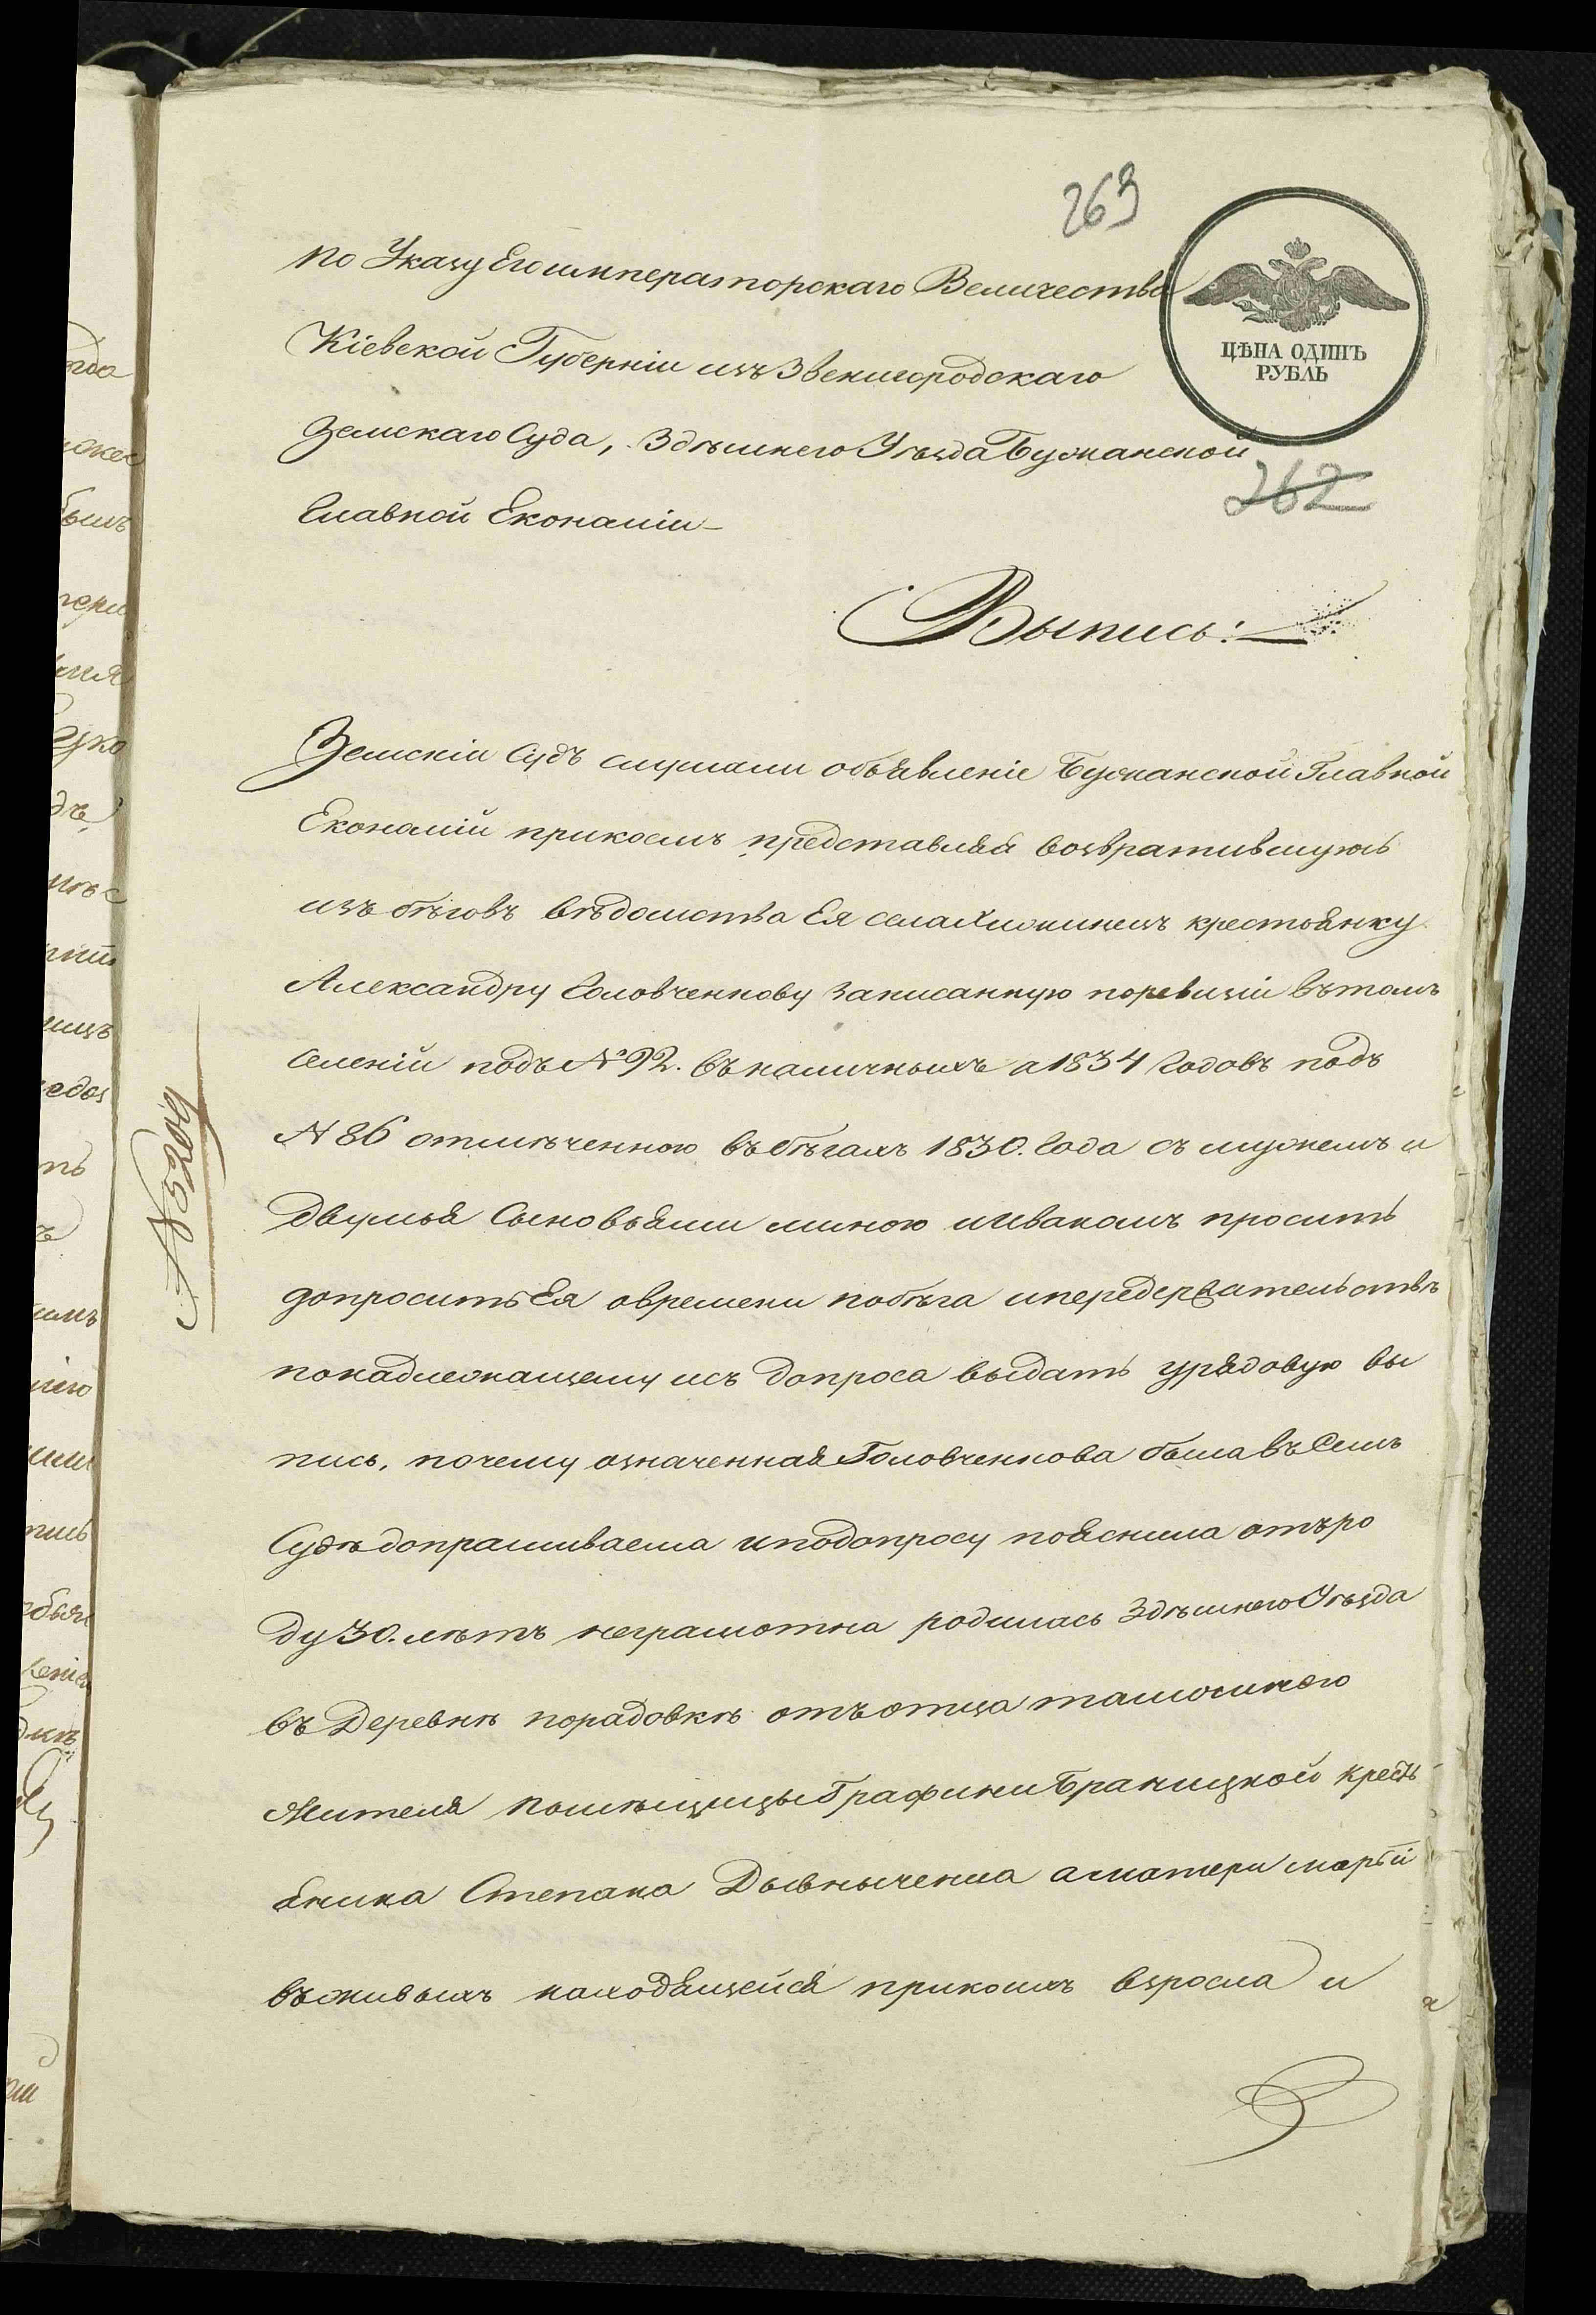 263
ЦѢНА ОДИНЪ
РУБЛЬ
262
По Указу Его императорскаго Величества
Кіевской Губерніи изъ Звенигородскаго
Земскаго Суда, Здѣшнего Уѣзда Бужанской
Главной Економіи
Выпись:
Земскіи Судъ слушали объявленіе Бужанской Главной
Економіи прикоемъ представляя возвратившуюсь
изъ бѣговъ вѣдомства Ея села крестьянку
Александру Головченкову записанную поревизіи вътомъ
селеніи подъ № 92. въналичныхъ а 1834 Годовъ подъ
N 86 отмѣченною въбѣгахъ 1830. Года съ мужемъ и
двумья Сыновьями миною ииваномъ просить
допросить Ея овремени побѣга ипередержательствѣ
понадлежащему исъ допроса выдать урядовую вы
пись, почему означенная Головченкова была въ Семъ
Судѣ допрашиваема иподопросу пояснила отъро
ду 30. лѣтъ неграмотна родилась Здѣшнего Уѣзда
въ Деревнѣ порадовкѣ отъ отца тамошнего
Жителя помѣщицы Графини Браницкой кресть
янина Степана а матери маріи
въживыхъ находящейся прикоихъ взросла и
№ 5209